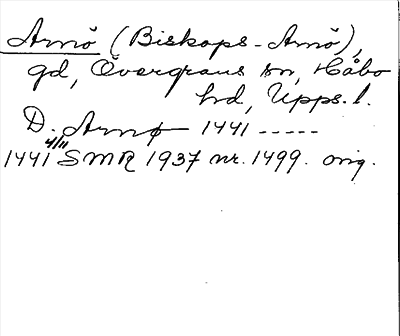 Arnö (Biskops-Arnö),
gd, Övergrans sn, Håbo
hd, Upps. l.
D. Arnø 1441 -----
4/11
1441 SMR 1937 nr. 1499. orig.